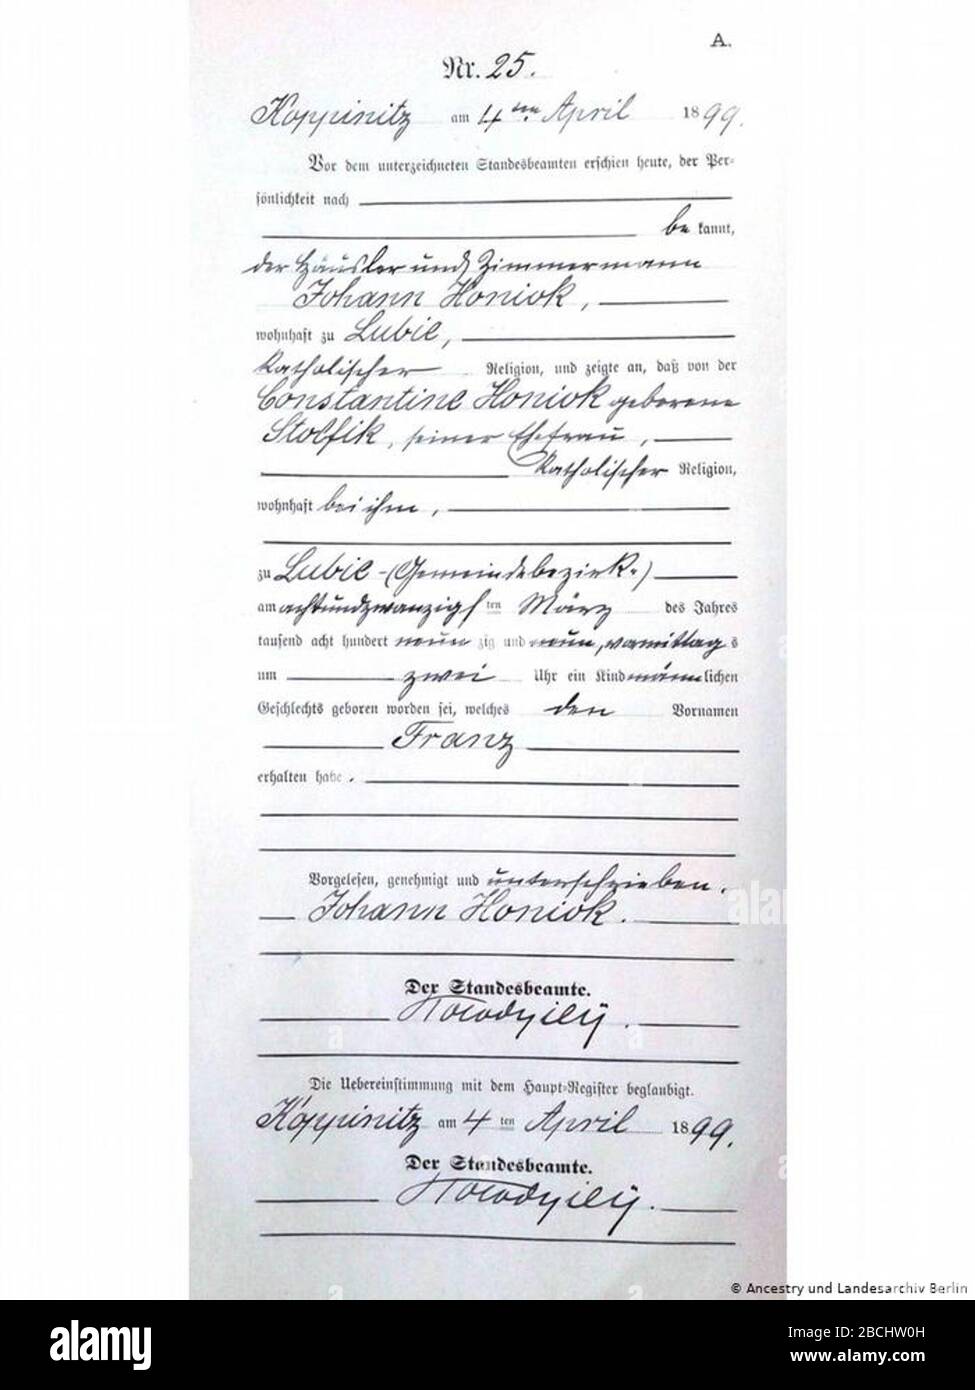 A.
Nr. 25.
Koppinitz am 4ten April 1899.
Vor dem unterzeichneten Standesbeamten erschien heute, der Per-
sönlichkeit nach
be kannt,
der Häusler und Zimmermann
Johann Honiok,
wohnhaft zu Lubie,
katholischer Religion, und zeigte an, daß von der
Constantine Honiok geborene
Stolfik, seiner Ehefrau,
katholischer Religion,
wohnhaft bei ihm,
zu Lubie-(Gemeindebezirk-)
am achtundzwanzigsten März des Jahres
tausend acht hundert neun zig und neun, vormittags
um zwei Uhr ein Kind männlichen
Geschlechts geboren worden sei, welches den Vornamen
Franz
erhalten habe.
Vorgelesen, genehmigt und unterschrieben.
Johann Honiok.
Der Standesbeamte.
Die Uebereinstimmung mit dem Haupt-Register beglaubigt.
Koppinitz am 4 ten April 1899.
Der Standesbeamte.
© Ancestry und Landesarchiv Berlin
alamy
a
a
alamy
Image ID: 2BCHW0H
www.alamy.com